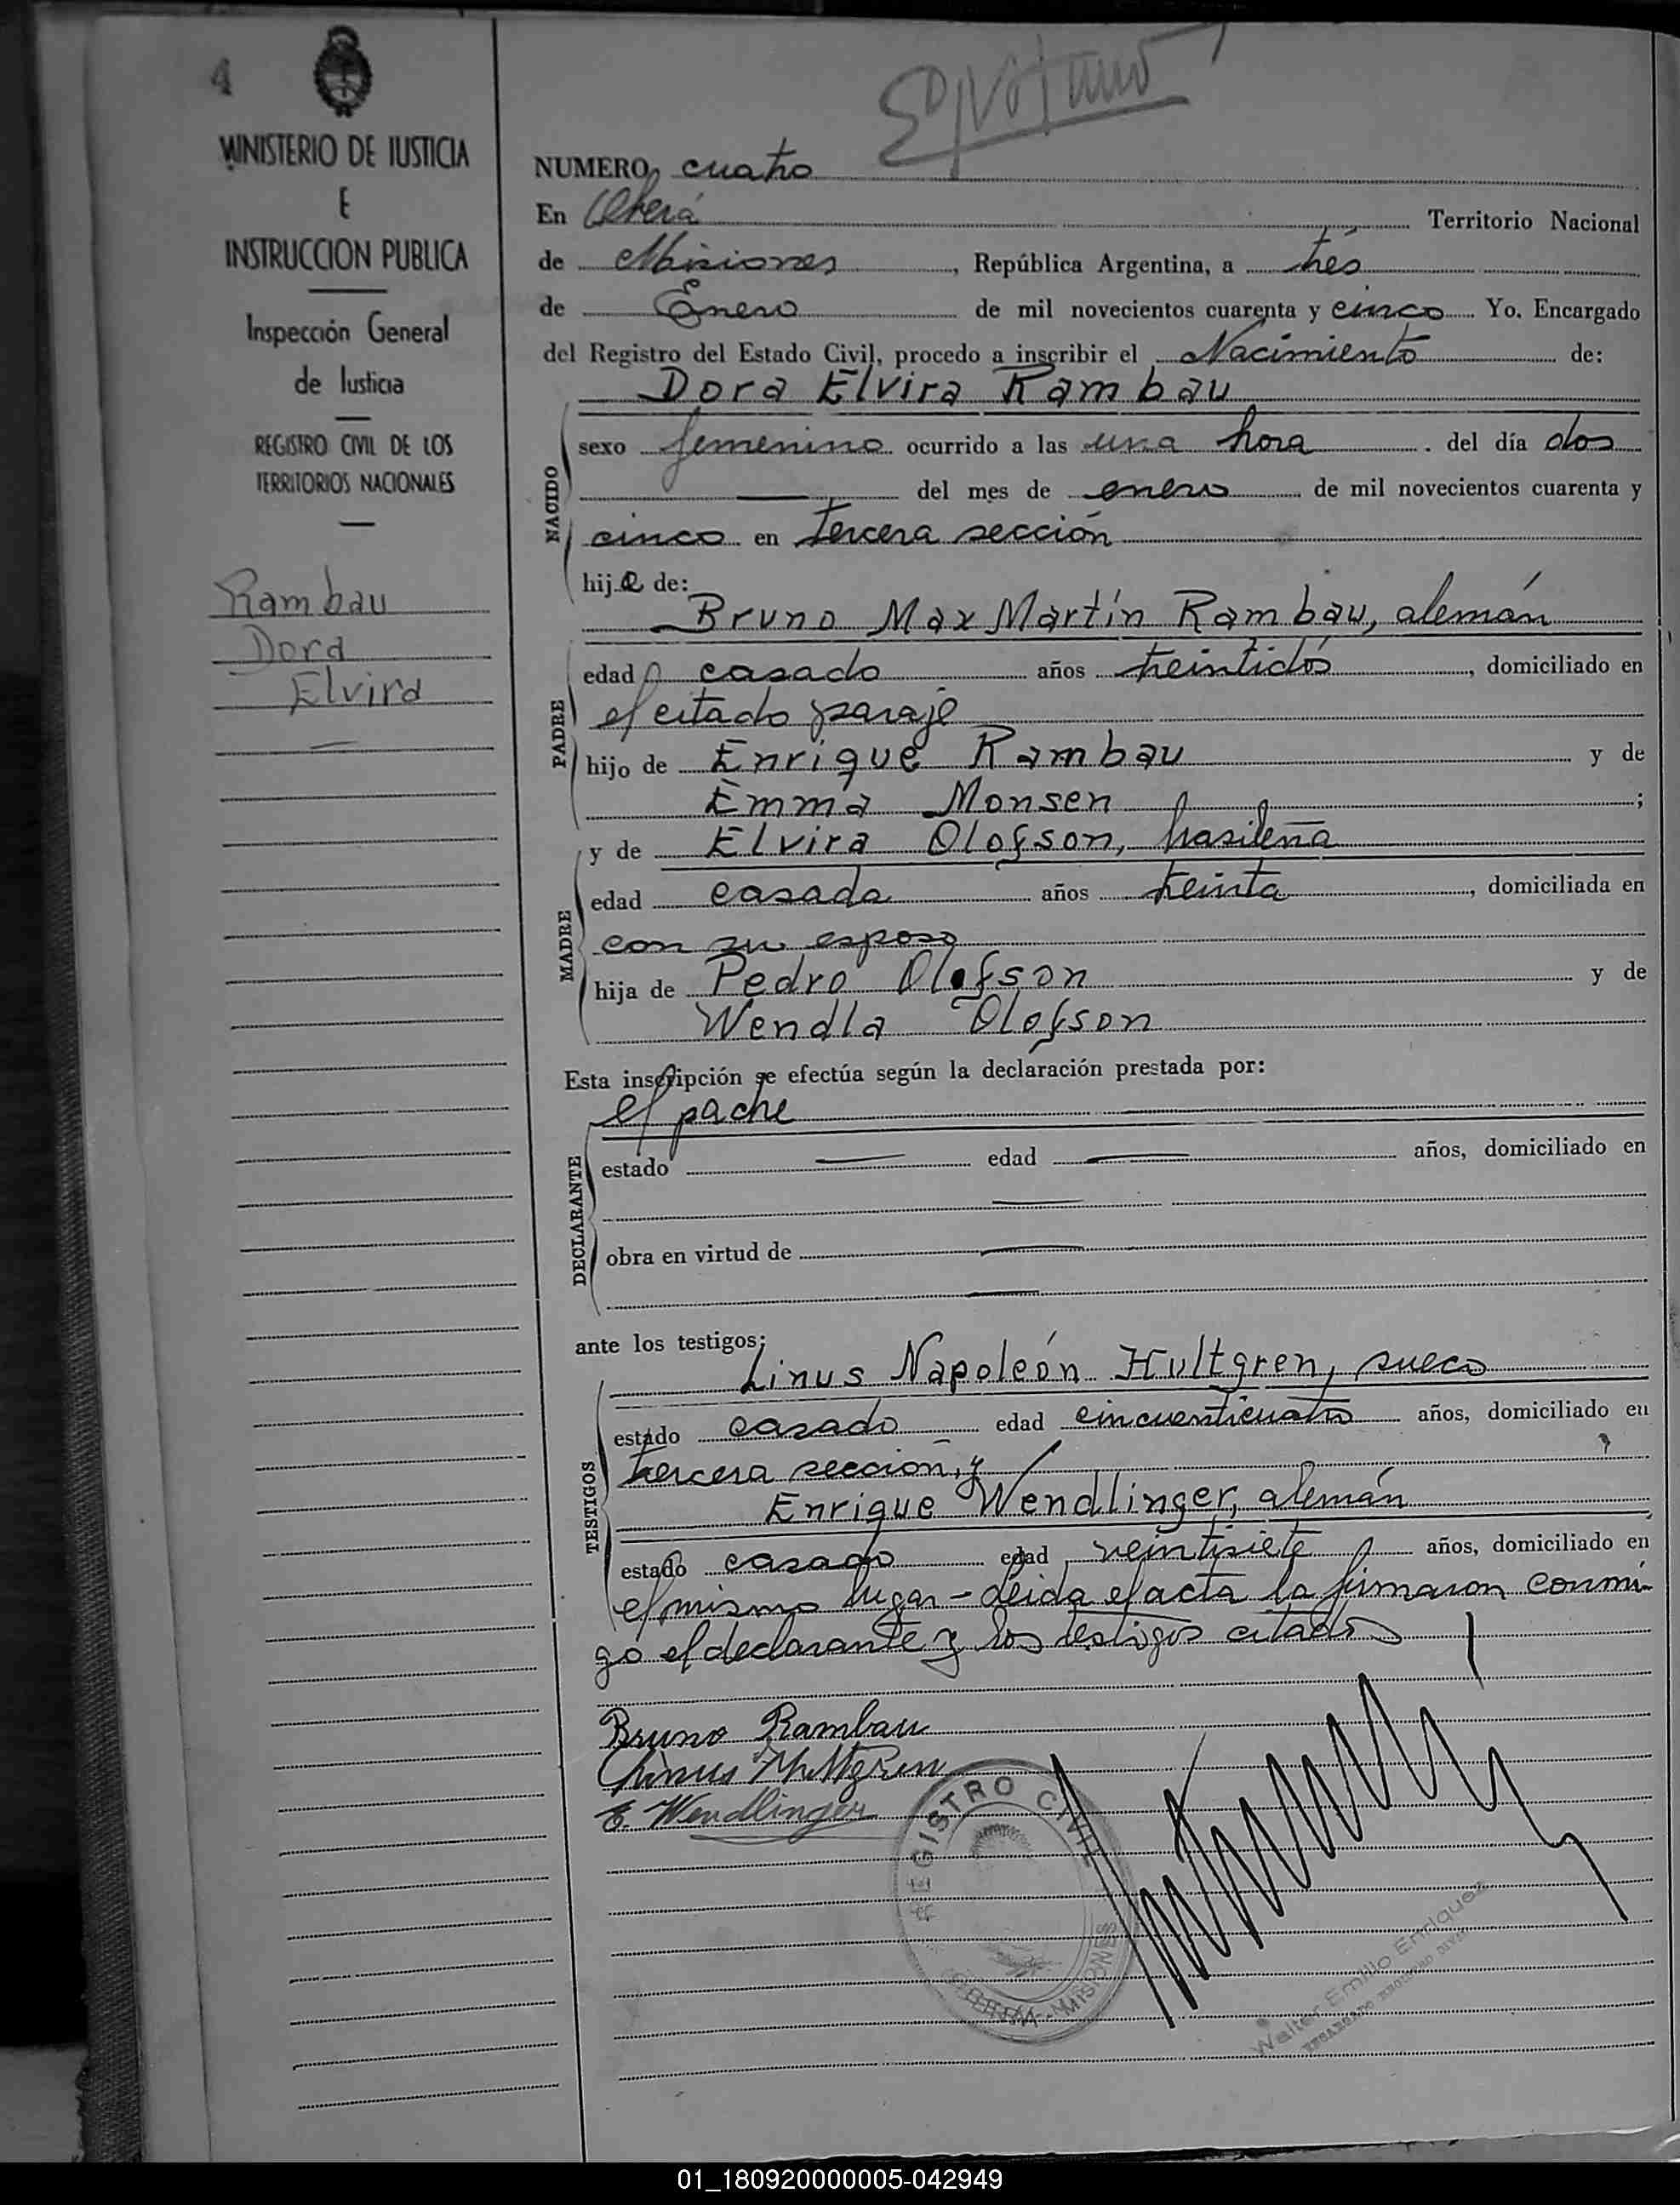 4
MINISTERIO DE JUSTICIA
E
INSTRUCCION PUBLICA
Inspección General
de Justicia
REGISTRO CIVIL DE LOS
TERRITORIOS NACIONALES
Rambau
Dora
Elvira
NUMERO cuatro
En Oberá Territorio Nacional
de Misiones, República Argentina, a trés
de Enero de mil novecientos cuarenta y cinco Yo. Encargado
del Registro del Estado Civil, procedo a inscribir el Nacimiento de:
Dora Elvira Rambau
NACIDO
sexo femenino ocurrido a las una hora. del día dos
— del mes de enero de mil novecientos cuarenta y
cinco en tercera sección
hija de:
Bruno Max Martín Rambau, alemán
PADRE
edad casado años treintidós, domiciliado en
el citado paraje
hijo de Enrique Rambau y de
Emma Monsen;
y de Elvira Olofson, brasileña
MADRE
edad casada años treinta, domiciliada en
con su esposo
hija de Pedro Olofson y de
Wendla Olofson
Esta inscripción se efectúa según la declaración prestada por:
el padre
DECLARANTE
estado — edad — años, domiciliado en
—
obra en virtud de —
—
ante los testigos:
Linus Napoleón Hultgren, sueco
TESTIGOS
estado casado edad cincuenticuatro años, domiciliado en
tercera sección, y
Enrique Wendlinger, alemán
estado casado edad veintisiete años, domiciliado en
el mismo lugar - leida el acta la firmaron conmi-
go el declarante y los testigos citados
Bruno Rambau
Linus Hultgren
E. Wendlinger
REGISTRO CIVIL
MISIONES
Walter Emilio Enriquez
01_180920000005-042949